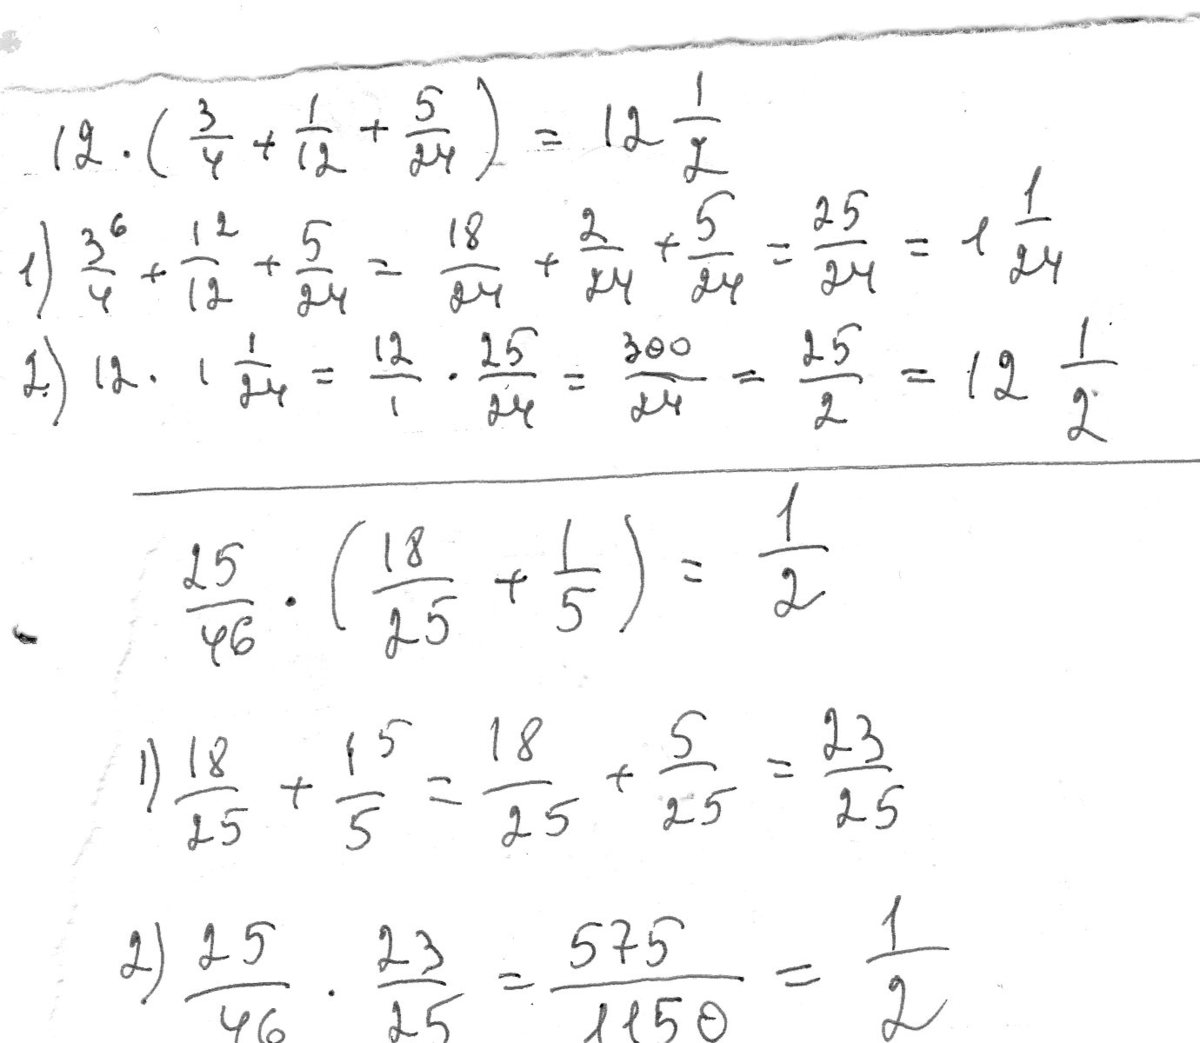 12 · (3/4 + 1/12 + 5/24) = 12 1/2
1) 3⁶/4 + 1²/12 + 5/24 = 18/24 + 2/24 + 5/24 = 25/24 = 1 1/24
2) 12 · 1 1/24 = 12/1 · 25/24 = 300/24 = 25/2 = 12 1/2
25/46 · (18/25 + 1/5) = 1/2
1) 18/25 + 1⁵/5 = 18/25 + 5/25 = 23/25
2) 25/46 · 23/25 = 575/1150 = 1/2